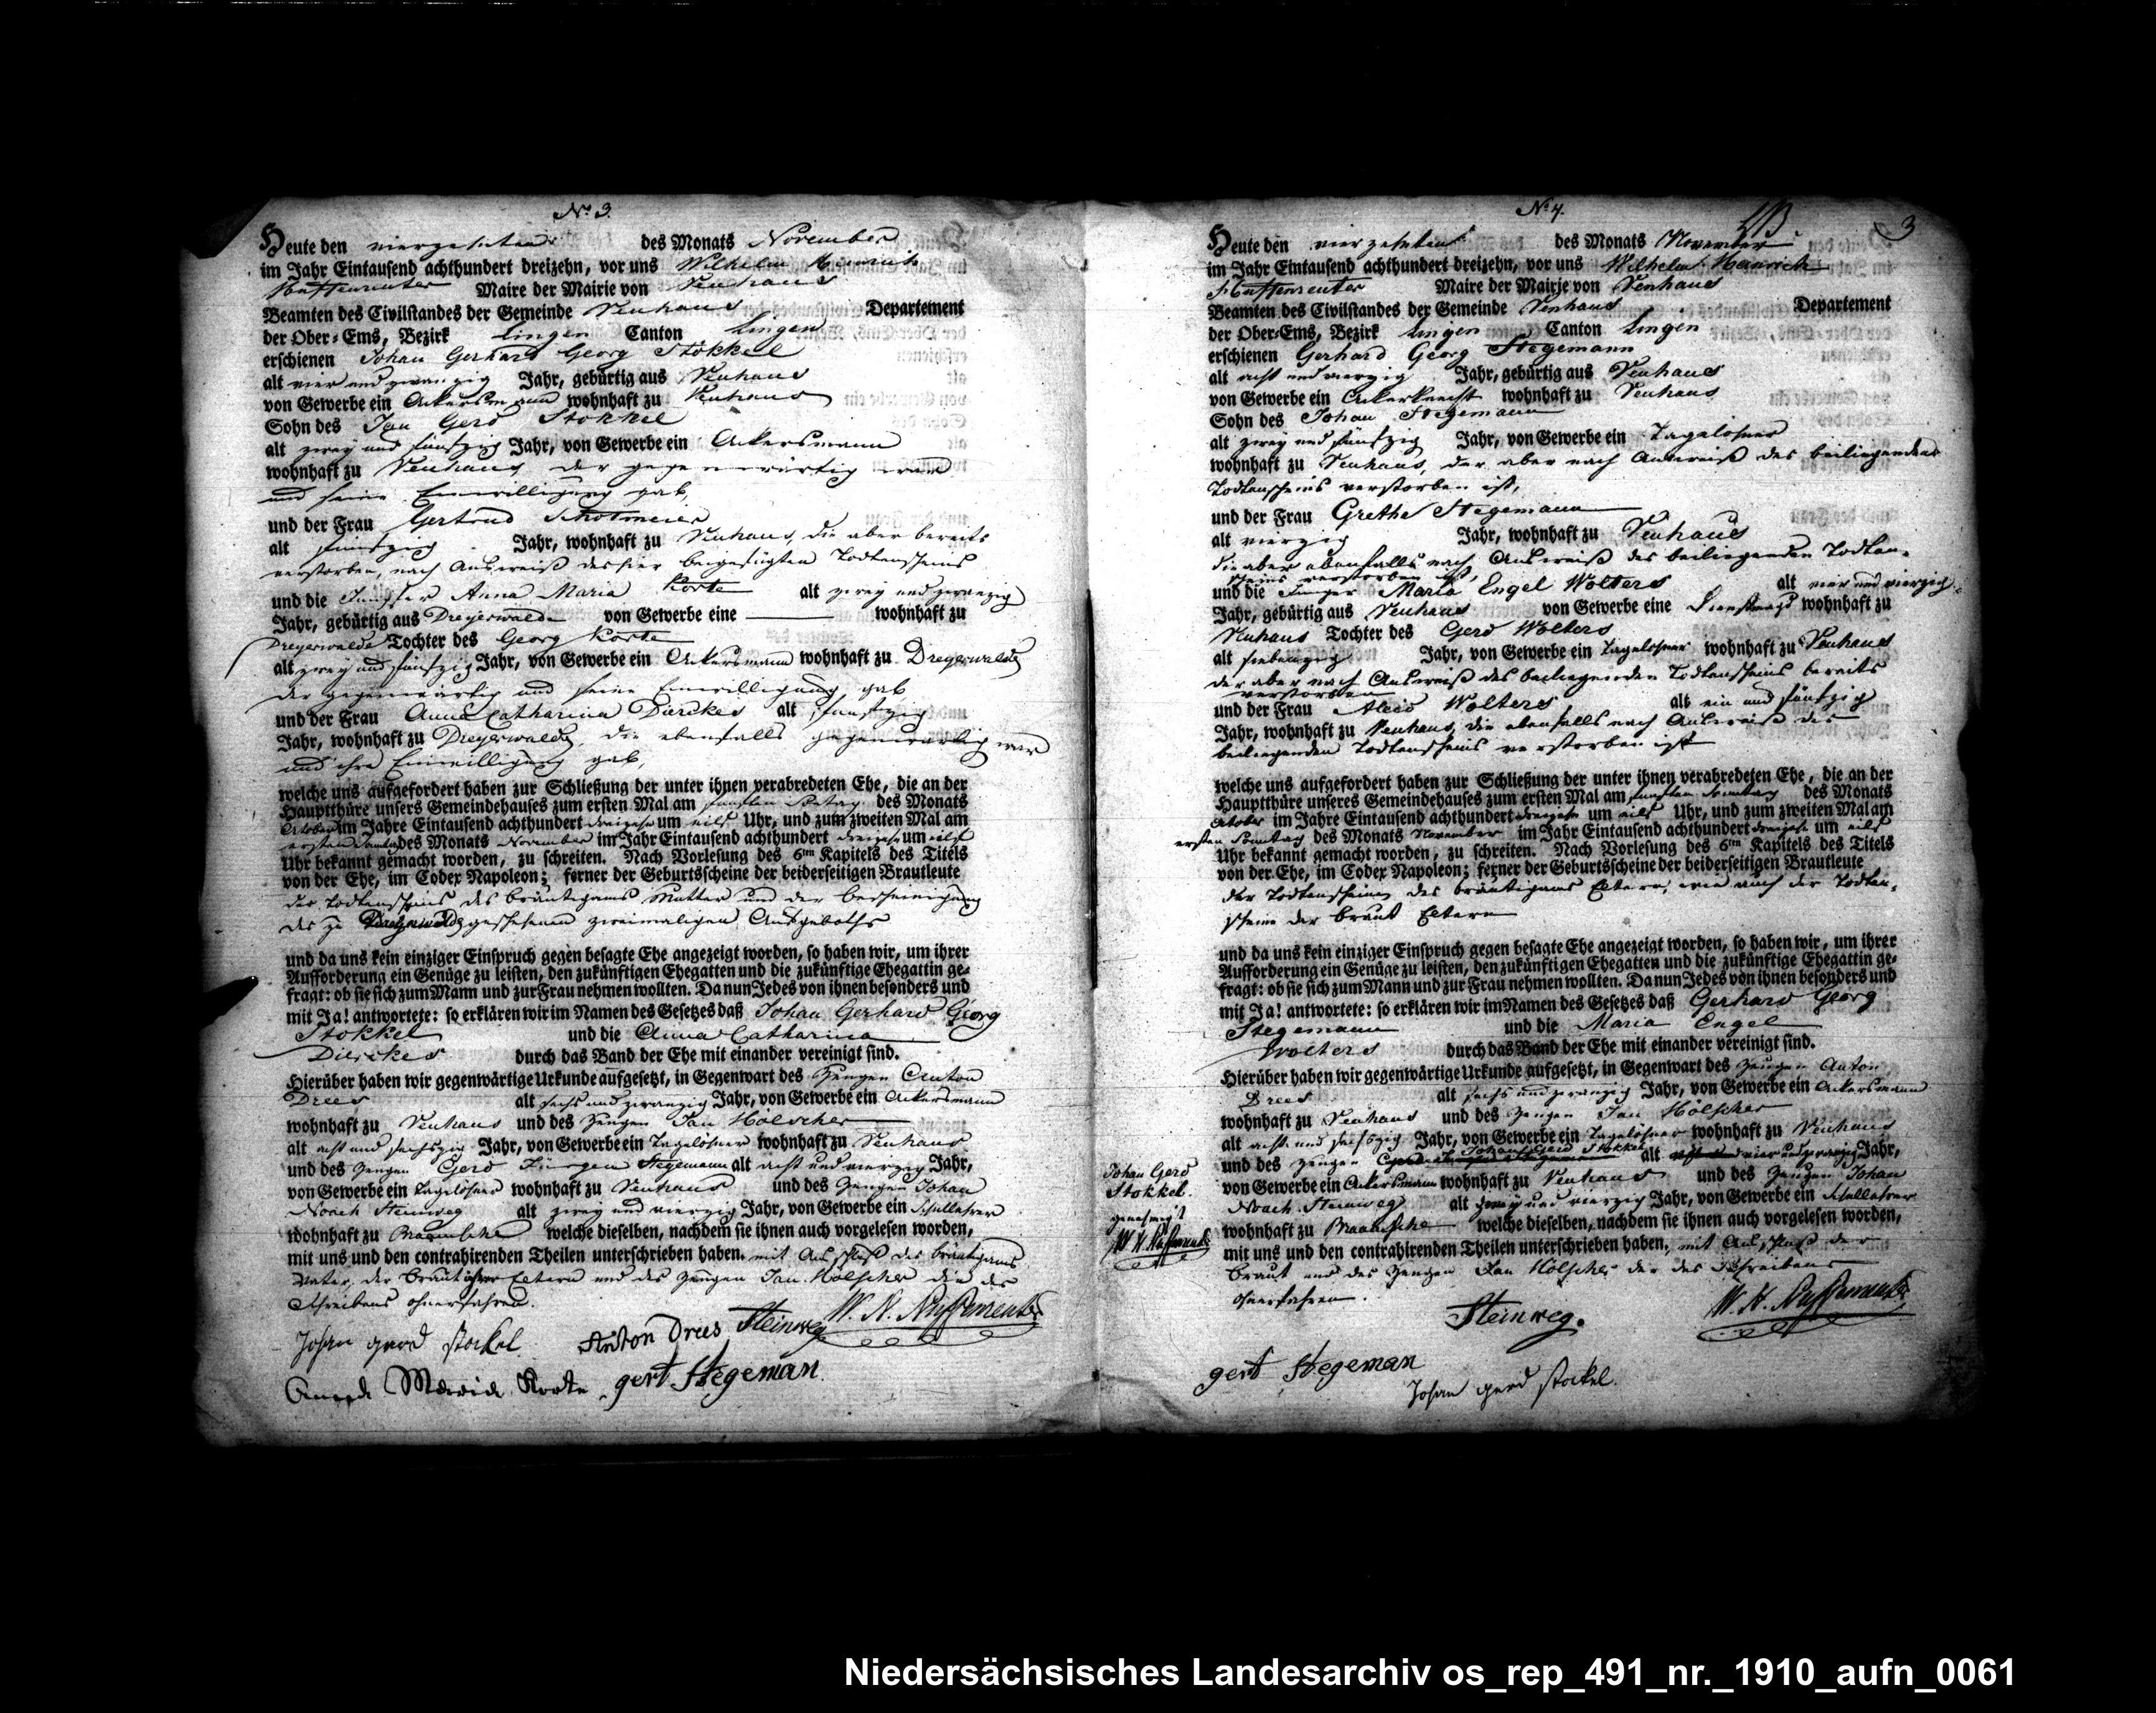 No 3.
Heute den vierzehnten des Monats November
im Jahr Eintausend achthundert dreizehn, vor uns Wilhelm Heinrich
Maire der Mairie von Venhaus
Beamten des Civilstandes der Gemeinde Venhaus Departement
der Ober-Ems, Bezirk Lingen Canton Lingen
erschienen Johan Gerhard Georg Stökkel
alt vier und zwanzig Jahr, gebürtig aus Venhaus
von Gewerbe ein Ackersmann wohnhaft zu Venhaus
Sohn des Jan Gerd Stokkel
alt zwey und fünfzig Jahr, von Gewerbe ein Ackersmann
wohnhaft zu Venhaus der gegenwärtig war
und seine Einwilligung gab,
und der Frau Gertrud Schotmeier
alt fünfzig Jahr, wohnhaft zu Venhaus, die aber bereits
verstorben, nach Ausweiß des hier beigefügten Todtenscheins
und die Jungfer Anna Maria Korte alt zwey und zwanzig
Jahr, gebürtig aus Dreyerwalde von Gewerbe eine wohnhaft zu
Dreyerwalde Tochter des Georg Korte
alt zwey und fünfzig Jahr, von Gewerbe ein Ackersmann wohnhaft zu Dreyerwalde
der gegenwärtig und seine Einwilligung gab
und der Frau Anna Catharina Dierckes alt fünfzig
Jahr, wohnhaft zu Dreyerwalde, die ebenfalls gegenwärtig war
und ihre Einwilligung gab,
welche uns aufgefordert haben zur Schließung der unter ihnen verabredeten Ehe, die an der
Hauptthüre unsers Gemeindehauses zum ersten Mal am fünften des Monats
October im Jahre Eintausend achthundert dreizehn um eilf Uhr, und zum zweiten Mal am
ersten Sontag des Monats November im Jahr Eintausend achthundert dreizehn um eilf
Uhr bekannt gemacht worden, zu schreiten. Nach Vorlesung des 6ten Kapitels des Titels
von der Ehe, im Codex Napoleon; ferner der Geburtsscheine der beiderseitigen Brautleute
des Todtenscheins des Bräutigams Mutter und der Bescheinigung
des zu Dreyerwalde geschehenen zweimaligen Ausgeboths
und da uns kein einziger Einspruch gegen besagte Ehe angezeigt worden, so haben wir, um ihrer
Aufforderung ein Genüge zu leisten, den zukünftigen Ehegatten und die zukünftige Ehegattin ge-
fragt: ob sie sich zum Mann und zur Frau nehmen wollten. Da nun Jedes von ihnen besonders und
mit Ja! antwortete: so erklären wir im Namen des Gesetzes daß Johan Gerhard Georg
Stokkel und die Anna Catharina
Dierckes durch das Band der Ehe mit einander vereinigt sind.
Hierüber haben wir gegenwärtige Urkunde aufgesetzt, in Gegenwart des Zeugen Anton
Drees alt sechs und zwanzig Jahr, von Gewerbe ein Ackersmann
wohnhaft zu Venhaus und des Zeugen Jan Hölscher
alt acht und sechszig Jahr, von Gewerbe ein Tagelöhner wohnhaft zu Venhaus
und des Zeugen Gerd Jürgen Stegemann alt acht und vierzig Jahr,
von Gewerbe ein Tagelöhner wohnhaft zu Venhaus und des Zeugen Johan
Noach Steinweg alt zwey und vierzig Jahr, von Gewerbe ein Schullehrer
wohnhaft zu welche dieselben, nachdem sie ihnen auch vorgelesen worden,
mit uns und den contrahirenden Theilen unterschrieben haben, mit Ausschluß des Bräutigams
Vater, der Braut ihrer Eltern und des Zeugen Jan Hölscher die des
Schreibens ohnerfahren.
Johan gerd stockel. Anton Drees Steinweg
Maria Korte gert Stegeman
No 4.
3
Heute den vierzehnten des Monats November
im Jahr Eintausend achthundert dreizehn, vor uns Wilhelm Heinrich
Maire der Mairie von Venhaus
Beamten des Civilstandes der Gemeinde Venhaus Departement
der Ober-Ems, Bezirk Lingen Canton Lingen
erschienen Gerhard Georg Stegemann
alt acht und vierzig Jahr, gebürtig aus Venhaus
von Gewerbe ein Ackerknecht wohnhaft zu Venhaus
Sohn des Johan Stegemann
alt zwey und fünfzig Jahr, von Gewerbe ein Tagelöhner
wohnhaft zu Venhaus, der aber nach Ausweiß des beiliegenden
Todtenscheins verstorben ist,
und der Frau Grethe Stegemann
alt vierzig Jahr, wohnhaft zu Venhaus
die aber ebenfalls nach Ausweiß des beiliegenden Todten-
scheins verstorben ist,
und die Jungfer Maria Engel Wolters alt vier und vierzig
Jahr, gebürtig aus Venhaus von Gewerbe eine Dienstmagd wohnhaft zu
Venhaus Tochter des Gerd Wolters
alt siebenzig Jahr, von Gewerbe ein Tagelöhner wohnhaft zu Venhaus
der aber nach Ausweiß des beiliegenden Todtenscheins bereits
verstorben
und der Frau Aleid Wolters alt ein und fünfzig
Jahr, wohnhaft zu Venhaus, die ebenfalls nach Ausweiß des
beiliegenden Todtenscheins verstorben ist
welche uns aufgefordert haben zur Schließung der unter ihnen verabredeten Ehe, die an der
Hauptthüre unseres Gemeindehauses zum ersten Mal am fünften Sonntag des Monats
October im Jahre Eintausend achthundert dreizehn um eilf Uhr, und zum zweiten Mal am
ersten Sonntag des Monats November im Jahr Eintausend achthundert dreizehn um eilf
Uhr bekannt gemacht worden, zu schreiten. Nach Vorlesung des 6ten Kapitels des Titels
von der Ehe, im Codex Napoleon; ferner der Geburtsscheine der beiderseitigen Brautleute
der Todtenscheine des Bräutigams Eltern, wie auch der Todten-
scheine der Braut Eltern
und da uns kein einziger Einspruch gegen besagte Ehe angezeigt worden, so haben wir, um ihrer
Aufforderung ein Genüge zu leisten, den zukünftigen Ehegatten und die zukünftige Ehegattin ge-
fragt: ob sie sich zum Mann und zur Frau nehmen wollten. Da nun Jedes von ihnen besonders und
mit Ja! antwortete: so erklären wir im Namen des Gesetzes daß Gerhard Georg
Stegemann und die Maria Engel
Wolters durch das Band der Ehe mit einander vereinigt sind.
Hierüber haben wir gegenwärtige Urkunde aufgesetzt, in Gegenwart des Zeugen Anton
Drees alt sechs und zwanzig Jahr, von Gewerbe ein Ackersmann
wohnhaft zu Venhaus und des Zeugen Jan Hölscher
alt acht und sechszig Jahr, von Gewerbe ein Tagelöhner wohnhaft zu Venhaus
und des Zeugen Johan Gerd Stokkel alt vier und zwanzig Jahr,
von Gewerbe ein Ackersmann wohnhaft zu Venhaus und des Zeugen Johan
Noach Steinweg alt zwey und vierzig Jahr, von Gewerbe ein Schullehrer
wohnhaft zu welche dieselben, nachdem sie ihnen auch vorgelesen worden,
mit uns und den contrahirenden Theilen unterschrieben haben, mit Ausschluß der
Braut und des Zeugen Jan Hölscher der des Schreibens
ohnerfahren.
Johan Gerd
Stokkel.
genehmigt
Steinweg.
gert Stegeman
Johan gerd stockel.
Niedersächsisches Landesarchiv os_rep_491_nr._1910_aufn_0061